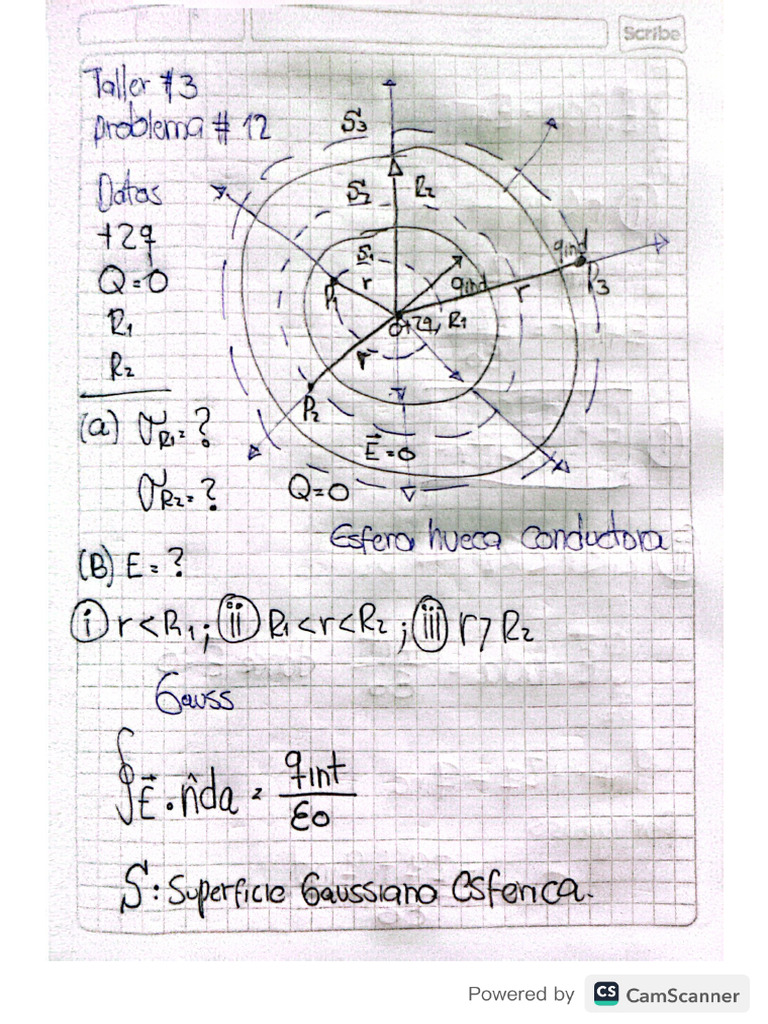 Scribe
Taller #3
problema # 12
Datos
+2q
Q=0
R1
R2
(a) σR1=?
σR2=?
S3
S2
R2
S1
r
qind
qind
P1
P3
r
0+2q, R1
r
P2
E⃗=0
Q=0
Esfera hueca conductora
(B) E=?
i r<R1; ii R1<r<R2; iii r>R2
Gauss
∮E⃗·n̂da = qint/εo
S: Superficie Gaussiana Esferica.
Powered by CS CamScanner